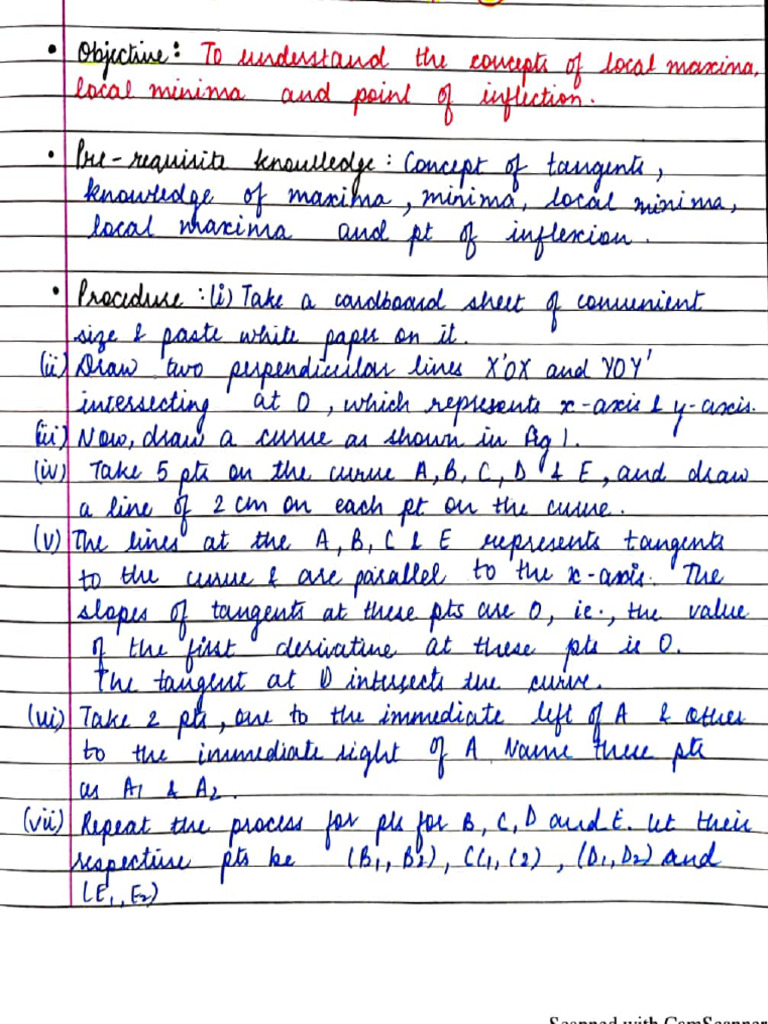 • Objective: To understand the concepts of local maxima,
local minima and point of inflection.
• Pre-requisite knowledge: Concept of tangents,
knowledge of maxima, minima, local minima,
local maxima and pt of inflexion.
• Procedure: (i) Take a cardboard sheet of convenient
size & paste white paper on it.
(ii) Draw two perpendicular lines X'OX and YOY'
intersecting at O, which represents x-axis & y-axis.
(iii) Now, draw a curve as shown in fig 1.
(iv) Take 5 pts on the curve A, B, C, D & E, and draw
a line of 2 cm on each pt on the curve.
(v) The lines at the A, B, C & E represents tangents
to the curve & are parallel to the x-axis. The
slopes of tangents at these pts are 0, ie., the value
of the first derivative at these pts is 0.
The tangent at D intersects the curve.
(vi) Take 2 pts, one to the immediate left of A & other
to the immediate right of A Name these pts
as A1 & A2.
(vii) Repeat the process for pts for B, C, D and E. let their
respective pts be (B1, B2), C(1, (2), (D1, D2) and
(E1, E2)
Scanned with CamScanner